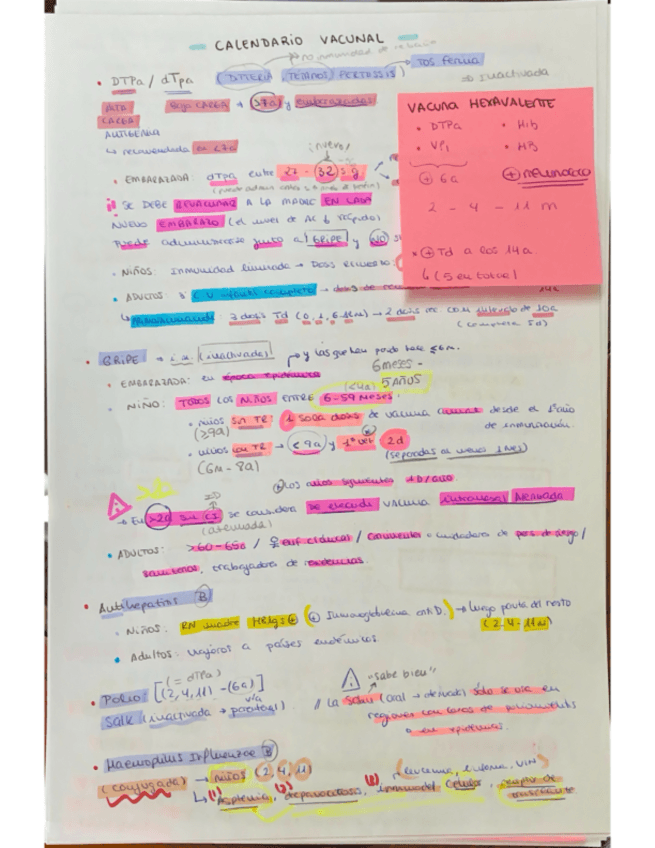 CALENDARIO VACUNAL
no inmunidad de rebaño
• DTPa / dTpa (DIFTERIA, TÉTANOS, PERTUSSIS) TOS FERINA
⇒ Inactivada
ALTA CARGA ANTIGÉNICA
baja CARGA → (>7a) y embarazadas
↳ recomendada en <7a
¡nuevo!
• EMBARAZADA: dTpa entre 27 - 32 s g
SE DEBE REVACUNAR A LA MADRE EN CADA
NUEVO EMBARAZO (el nivel de AC ↓ rápido)
Puede administrarse junto a GRIPE y NO
• NIÑOS: Inmunidad limitada → Dosis RECUERDO:
• ADULTOS:
3 dosis Td (0, 1, 6-12m) → 2 dosis rec con intervalo de 10a
(completa 5d)
VACUNA HEXAVALENTE
• DTPa • Hib
• VPI • HB
⊕ 6a ⊕ neumococo
2 - 4 - 11 m
• ⊕ Td a los 14a
↳ (5 en total)
• GRIPE → i.m. (inactivada) y las que han parido hace <6m.
6 meses -
5 AÑOS
• EMBARAZADA: en época epidémica
• NIÑO: TODOS LOS NIÑOS ENTRE 6-59 MESES.
• niños sin TR: 1 sola dosis de vacuna desde el 1º año
(≥9a) de inmunización.
• niños con TR → <9a y 1ª vez 2d
(6m - 8a) (separadas al menos 1 mes)
los años siguientes 1D/año
→ En >2a sin CI se considera de elección vacuna intranasal atenuada
(atenuada)
• ADULTOS: >60-65a / enf. crónicas / convivientes o cuidadores de pers. de riesgo /
sanitarios, trabajadores de residencias.
• Antihepatitis B
• Niños: RN madre HBAg ⊕ (⊕ Inmunoglobulina antiD.) → luego pauta del resto
(2, 4 - 11m)
• Adultos: viajeros a países endémicos
(= dTPa)
• POLIO: [(2, 4, 11) - (6a)]
vía
SALK (inactivada → parenteral).
"sabe bien"
// La Sabin (oral → atenuada) sólo se usa en
regiones con casos de poliomielitis
o en epidemias.
• Haemophilus Influenzae B
(conjugada) → niños (2, 4, 11)
(leucemia, linfoma, VIH)
↳ (1) Asplenia, (2) drepanocitosis, (3) inmunodef. celular, receptor de
trasplante